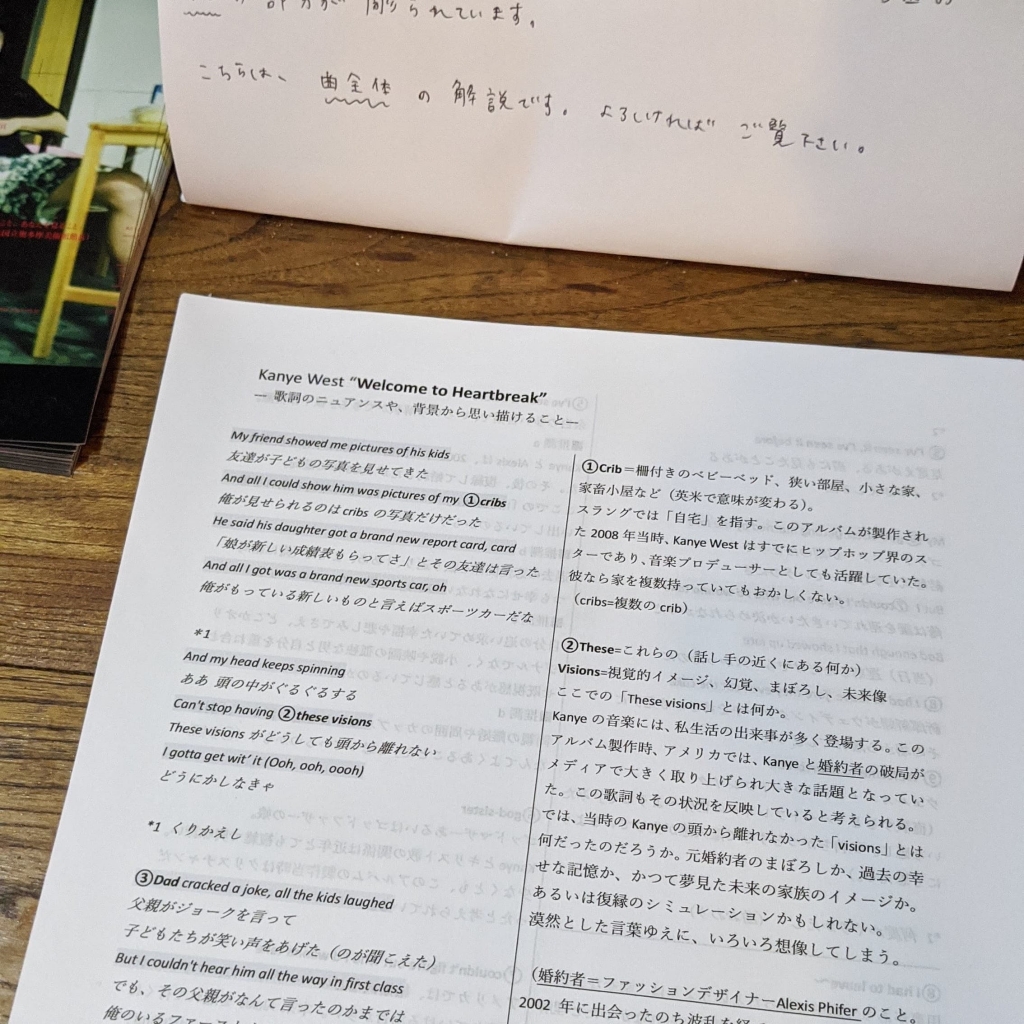 の部分が彫られています。
こちらは、曲全体の解説です。よろしければご覧下さい。
Kanye West “Welcome to Heartbreak”
― 歌詞のニュアンスや、背景から思い描けること―
My friend showed me pictures of his kids
友達が子どもの写真を見せてきた
And all I could show him was pictures of my ①cribs
俺が見せられるのは cribs の写真だけだった
He said his daughter got a brand new report card, card
「娘が新しい成績表もらってさ」とその友達は言った
And all I got was a brand new sports car, oh
俺がもっている新しいものと言えばスポーツカーだな
*1
And my head keeps spinning
ああ 頭の中がぐるぐるする
Can't stop having ②these visions
These visions がどうしても頭から離れない
I gotta get wit’ it (Ooh, ooh, oooh)
どうにかしなきゃ
*1 くりかえし
③Dad cracked a joke, all the kids laughed
父親がジョークを言って
子どもたちが笑い声をあげた（のが聞こえた）
But I couldn't hear him all the way in first class
でも、その父親がなんて言ったのかまでは
俺のいるファースト
①Crib＝柵付きのベビーベッド、狭い部屋、小さな家、
家畜小屋など（英米で意味が変わる）。
スラングでは「自宅」を指す。このアルバムが製作され
た 2008 年当時、Kanye West はすでにヒップホップ界のス
ターであり、音楽プロデューサーとしても活躍していた。
彼なら家を複数持っていてもおかしくない。
（cribs=複数の crib）
②These=これらの（話し手の近くにある何か）
Visions=視覚的イメージ、幻覚、まぼろし、未来像
ここでの「These visions」とは何か。
Kanye の音楽には、私生活の出来事が多く登場する。この
アルバム製作時、アメリカでは、Kanye と婚約者の破局が
メディアで大きく取り上げられ大きな話題となってい
た。この歌詞もその状況を反映していると考えられる。
では、当時の Kanye の頭から離れなかった「visions」とは
何だったのだろうか。元婚約者のまぼろしか、過去の幸
せな記憶か、かつて夢見た未来の家族のイメージか。
あるいは復縁のシミュレーションかもしれない。
漠然とした言葉ゆえに、いろいろ想像してしまう。
（婚約者＝ファッションデザイナーAlexis Phifer のこと。
2002 年に出会ったのち波乱を経